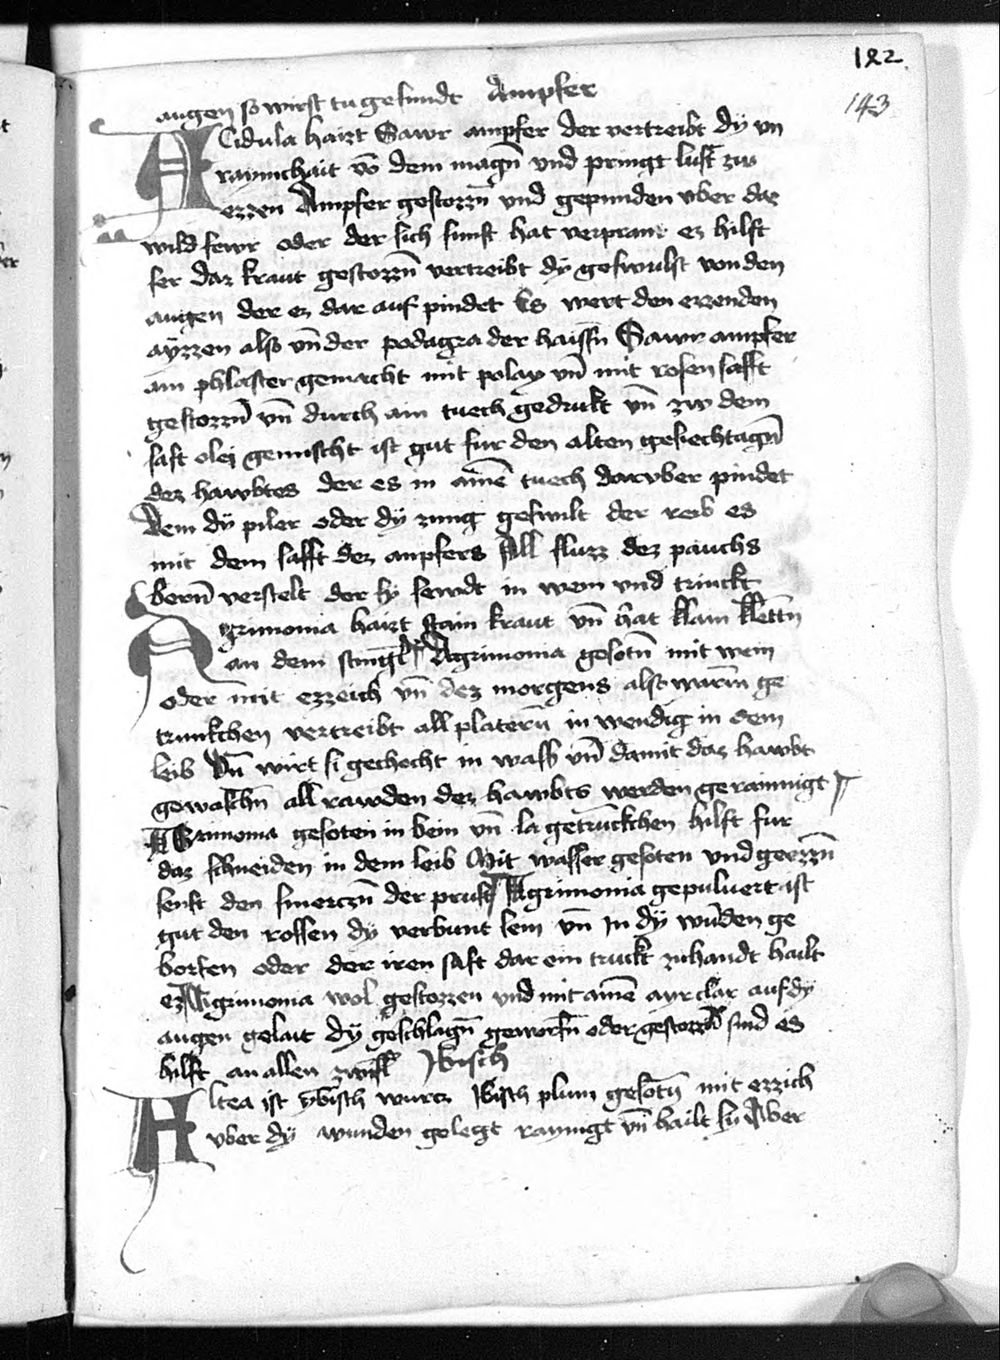 182
143
augen so wirst tu gesundt Ampfer
Acidula haizt Sawr ampfer der vertreibt dÿ vn
raynichait võ dem magñ vnd pringt lust zw
ezzen Ampfer gestozzñ vnd gepunden vber daz
wild fewr oder der sich sunst hat verprant ez hilft
ser daz kraut gestozzñ vertreibt dÿ geswulst von den
augen der ez dar auf pindet Es wert den ezzenden
aÿzzen also vñ der podagra der haissñ Sawr ampfer
ain phlaster gemacht mit polay vñ mit rosen safft
gestozzñ vñ durch ain tuech gedrukt vñ zw dem
saft olei gemischt ist gut fur den alten gesiechtagñ
dez hawbtes der es in ainẽ tuech daruber pindet
Wem dÿ piler oder dÿ zung geswilt der reib es
mit dem safft dez ampfers All fluzz dez pauchs
verstelt der sy sewdt in wein vnd trinckt
Agrimonia haizt stain kraut vñ hat klain klettñ
an dem stingl Agrimonia gesotñ mit wein
oder mit ezzeich vñ dez morgens also warm ge
trunkchen vertreibt all platerñ in wendig in dem
leib Vñ wirt si gechocht in wass vñ damit daz hawbt
gewaschñ all rawden dez hawbts werden gerainnigt
Agrimonia gesoten in wein vñ getrunckhen hilft fur
daz schneiden in dem leib Mit wasser gesoten vnd geezzñ
senft den smerczñ der prust Agrimonia gepuluert ist
gut den rossen dÿ verbunt sein vñ In dÿ wunden ge
worfen oder der iren saft dar ein truckt zuhandt hailt
ez Agrimonia wol gestozzen vnd mit ainẽ ayrclar auf dÿ
augen gelait dÿ geschlagñ geworfñ oder gestozzñ sind es
hilft an allen zweifl Ibisch
Altea ist ybisch wurcz Ibisch plum gesotñ mit ezzich
vber dÿ wunden gelegt raynigt vñ hailt sy Aber